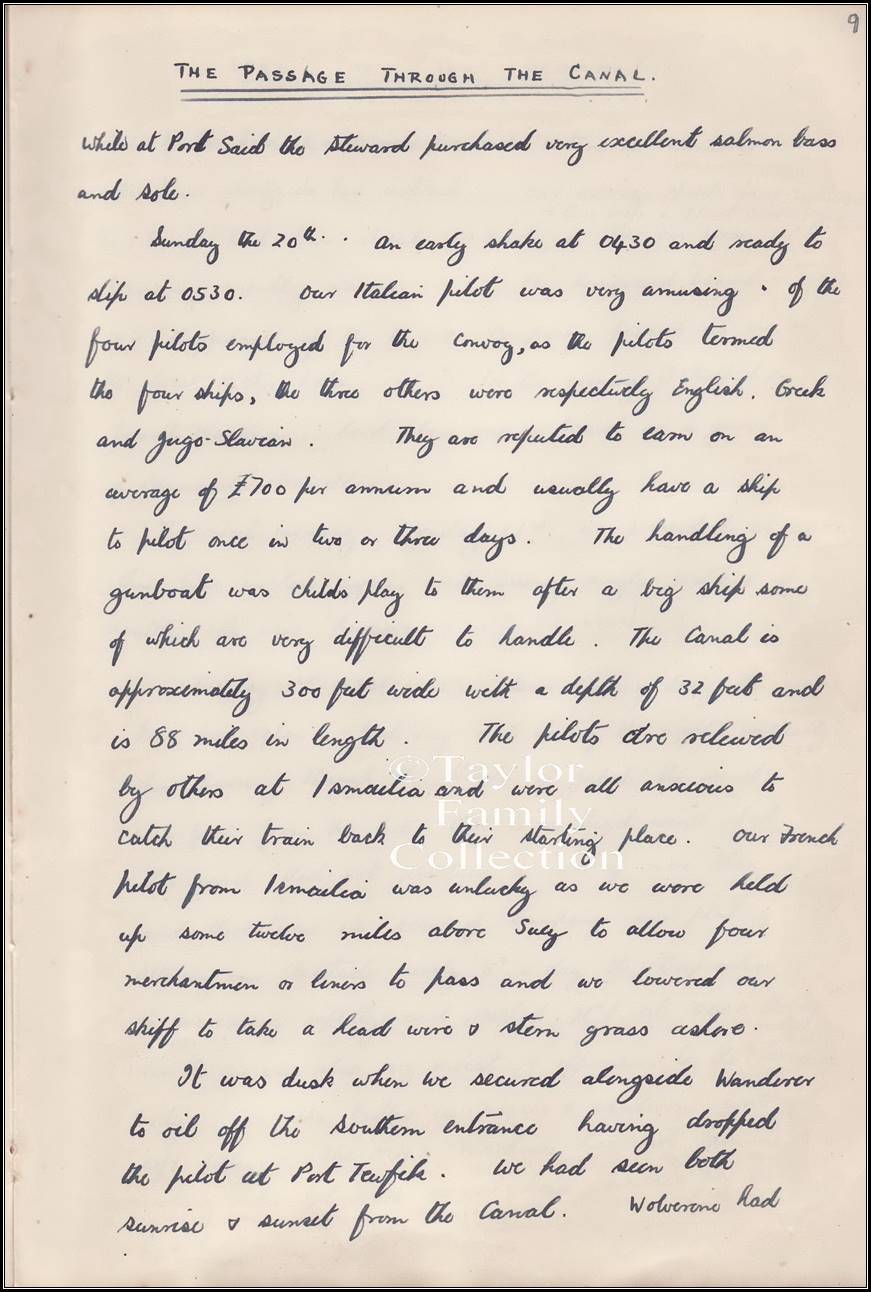 9
THE PASSAGE THROUGH THE CANAL.
while at Port Said the steward purchased very excellent salmon bass
and sole.
Sunday the 20th. . An early shake at 0430 and ready to
slip at 0530. Our Italian pilot was very amusing . of the
four pilots employed for the convoy, as the pilots termed
the four ships, the three others were respectively English, Greek
and Jugo-Slavian . They are reputed to earn on an
average of £700 per annum and usually have a ship
to pilot once in two or three days. The handling of a
gunboat was childs play to them after a big ship some
of which are very difficult to handle. The Canal is
approximately 300 feet wide with a depth of 32 feet and
is 88 miles in length . The pilots are relieved
by others at Ismailia and were all anxious to
catch their train back to their starting place. Our French
pilot from Ismailia was unlucky as we were held
up some twelve miles above Suez to allow four
merchantmen or liners to pass and we lowered our
skiff to take a head wire & stern grass ashore.
It was dusk when we secured alongside Wanderer
to oil off the Southern entrance having dropped
the pilot at Port Tewfik. We had seen both
sunrise & sunset from the Canal. Wolverine had
©Taylor
Family
Collection